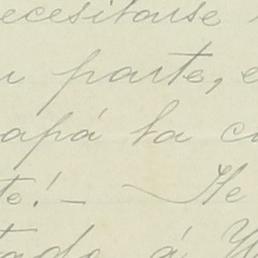 ecesitouse
parte, e
apá la c
te! — He
tado á